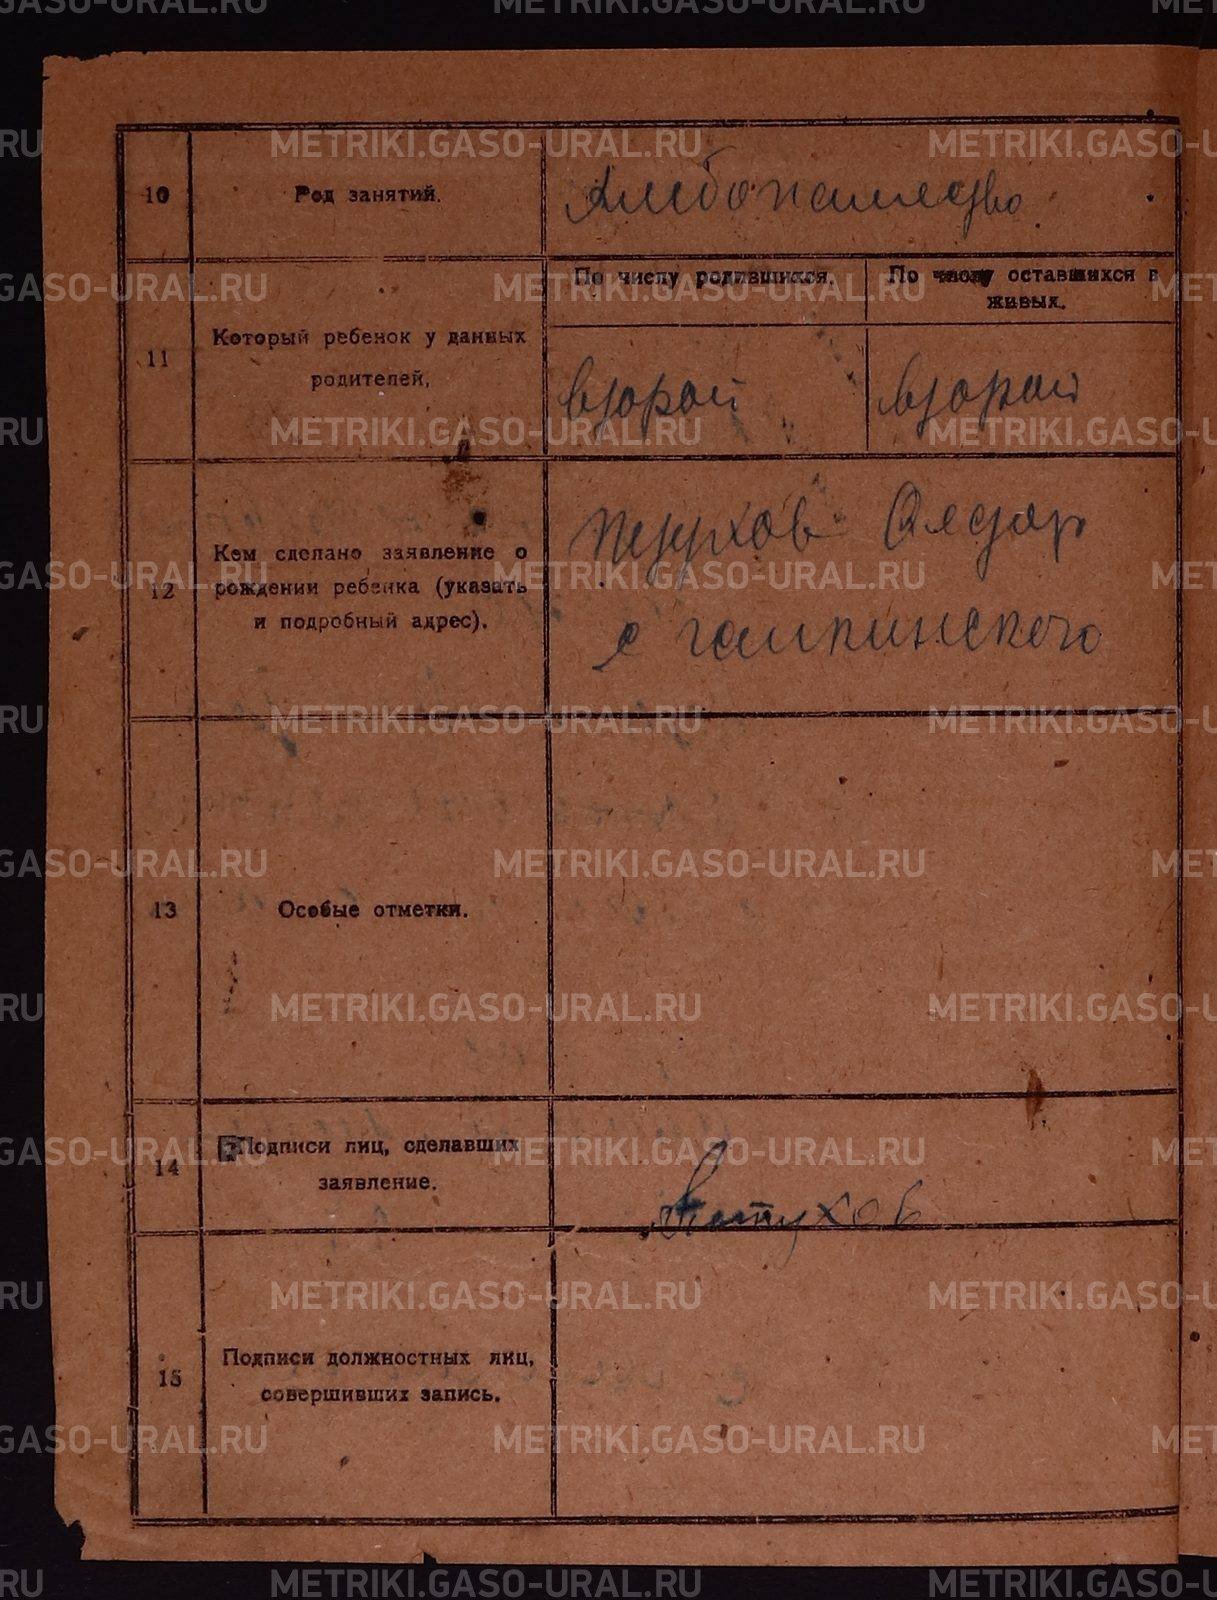 10
Род занятий.
Хлебопашество
11
Который ребенок у данных
родителей,
По числу родившихся.
По числу оставшихся в
живых.
второй
второй
12
Кем сделано заявление о
рождении ребенка (указать
и подробный адрес).
с галкинского
13
Особые отметки.
14
Подписи лиц, сделавших
заявление.
15
Подписи должностных лиц,
совершивших запись.
METRIKI.GASO-URAL.RU